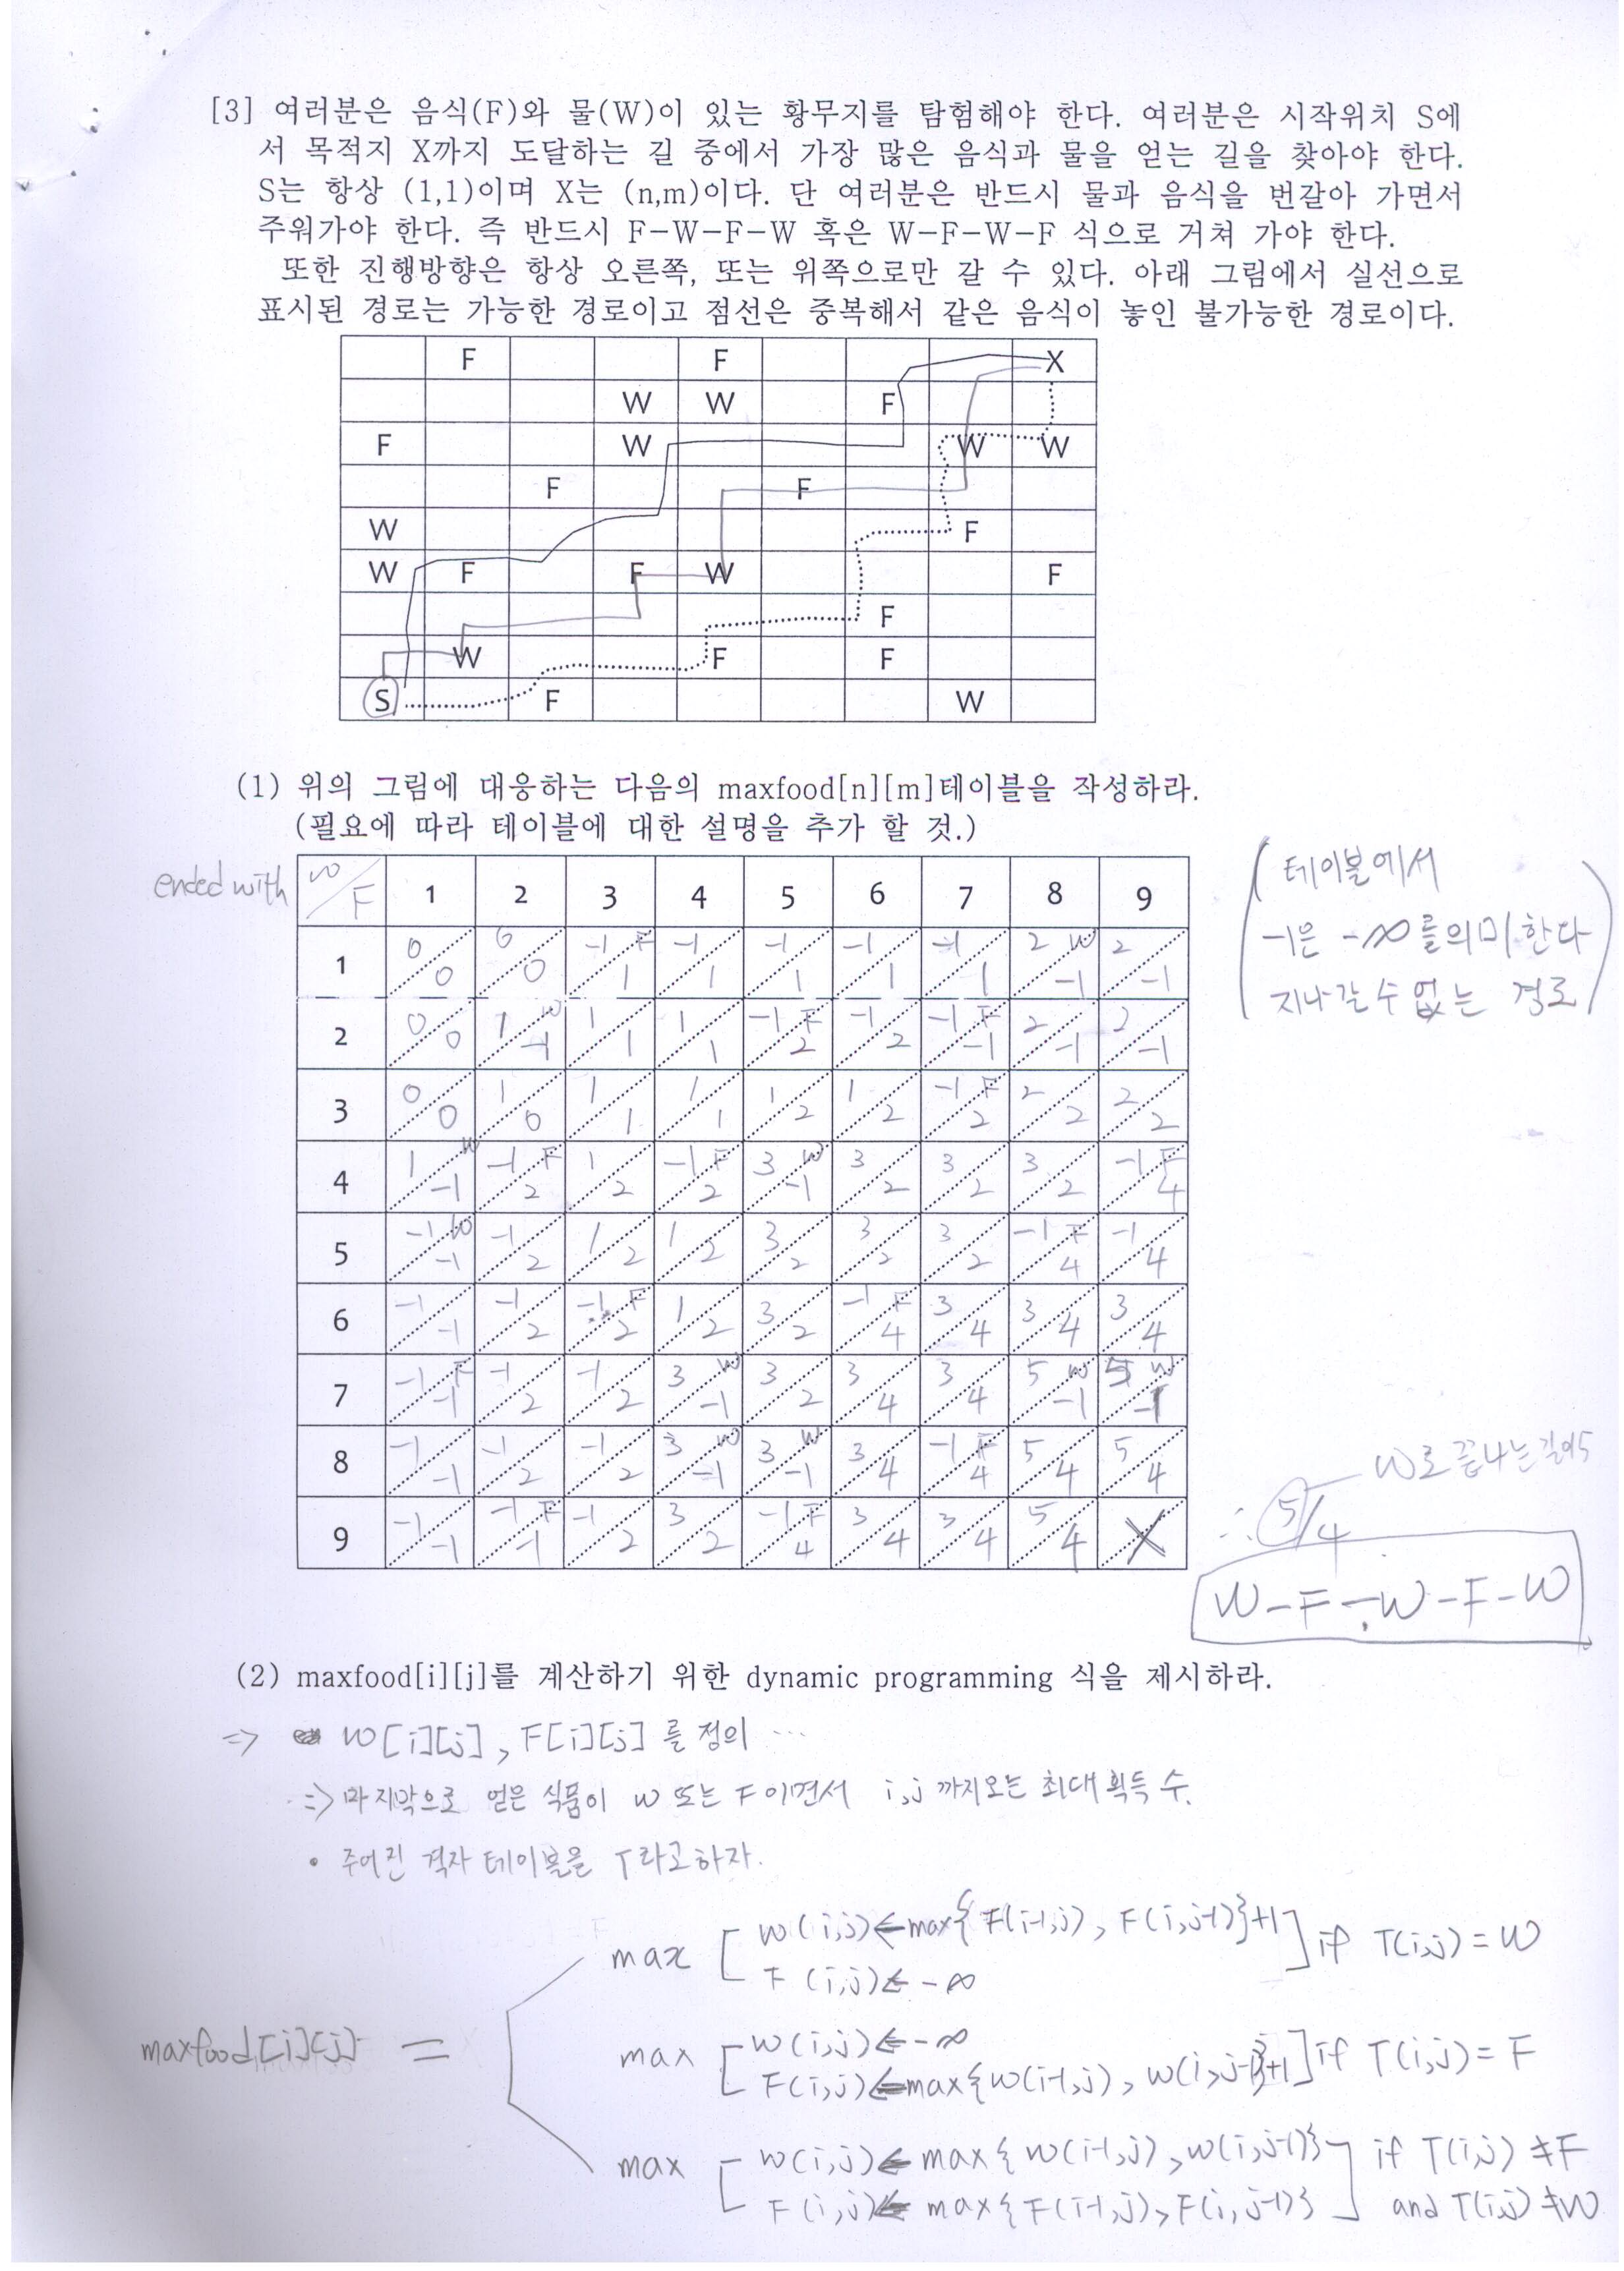 [3] 여러분은 음식(F)와 물(W)이 있는 황무지를 탐험해야 한다. 여러분은 시작위치 S에
서 목적지 X까지 도달하는 길 중에서 가장 많은 음식과 물을 얻는 길을 찾아야 한다.
S는 항상 (1,1)이며 X는 (n,m)이다. 단 여러분은 반드시 물과 음식을 번갈아 가면서
주워가야 한다. 즉 반드시 F-W-F-W 혹은 W-F-W-F 식으로 거쳐 가야 한다.
또한 진행방향은 항상 오른쪽, 또는 위쪽으로만 갈 수 있다. 아래 그림에서 실선으로
표시된 경로는 가능한 경로이고 점선은 중복해서 같은 음식이 놓인 불가능한 경로이다.
F F X
W W F
F W W W
F F
W F
W F F W F
F
W F F
S F W
(1) 위의 그림에 대응하는 다음의 maxfood[n][m]테이블을 작성하라.
(필요에 따라 테이블에 대한 설명을 추가 할 것.)
ended with W/F 1 2 3 4 5 6 7 8 9
(테이블에서
-1은 -∞를의미한다
지나갈수 없는 경로)
1 0/0 0/0 -1/1 F -1/1 -1/1 -1/1 -1/1 2/-1 W 2/-1
2 0/0 1/-1 W 1/1 1/1 -1/2 F -1/2 -1/-1 F 2/-1 2/-1
3 0/0 1/0 1/1 1/1 1/2 1/2 -1/2 F 2/2 2/2
4 1/-1 W -1/2 F 1/2 -1/2 F 3/-1 W 3/2 3/2 3/2 -1/4 F
5 -1/-1 W -1/2 1/2 1/2 3/2 3/2 3/2 -1/4 F -1/4
6 -1/-1 -1/2 -1/2 F 1/2 3/2 -1/4 F 3/4 3/4 3/4
7 -1/-1 F -1/2 -1/2 3/-1 W 3/2 3/4 3/4 5/-1 W 5/-1 W
8 -1/-1 -1/2 -1/2 3/-1 W 3/-1 W 3/4 -1/4 F 5/4 5/4
9 -1/-1 -1/-1 F -1/2 3/2 -1/4 F 3/4 3/4 5/4 X
W로 끝나는 길이5
∴ 5/4
W-F-W-F-W
(2) maxfood[i][j]를 계산하기 위한 dynamic programming 식을 제시하라.
⇒ W[i][j], F[i][j] 를 정의 ...
⇒ 마지막으로 얻은 식품이 W 또는 F 이면서 i,j 까지오는 최대 획득 수.
• 주어진 격자 테이블을 T라고하자.
maxfood[i][j] =
max [ W(i,j) ← max{F(i-1,j), F(i,j-1)}+1
F(i,j) ← -∞ ] if T(i,j) = W
max [ W(i,j) ← -∞
F(i,j) ← max{W(i-1,j), W(i,j-1)}+1 ] if T(i,j) = F
max [ W(i,j) ← max{W(i-1,j), W(i,j-1)}
F(i,j) ← max{F(i-1,j), F(i,j-1)} ] if T(i,j) ≠ F
and T(i,j) ≠ W